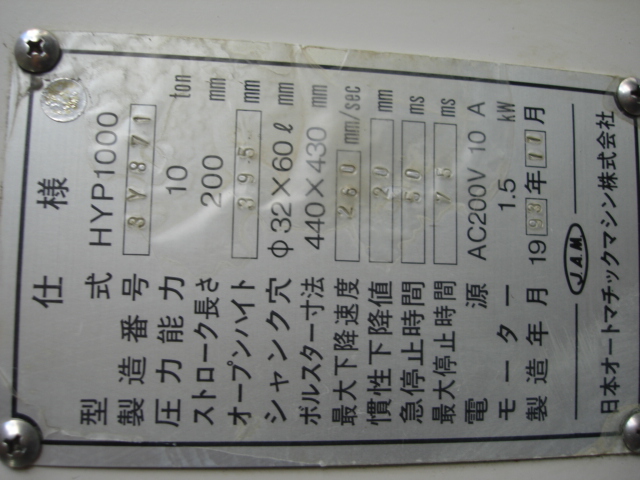 仕様
型式 HYP1000
製造番号 8Y871
圧力能力 10 ton
ストローク長さ 200 mm
オープンハイト 395 mm
シャンク穴 φ32×60ℓ mm
ボルスター寸法 440×430 mm
最大下降速度 260 mm/sec
慣性下降値 20 mm
急停止時間 50 ms
最大停止時間 75 ms
電源 AC200V 10 A
モーター 1.5 kW
製造年月 1993年11月
J.A.M
日本オートマチックマシン株式会社